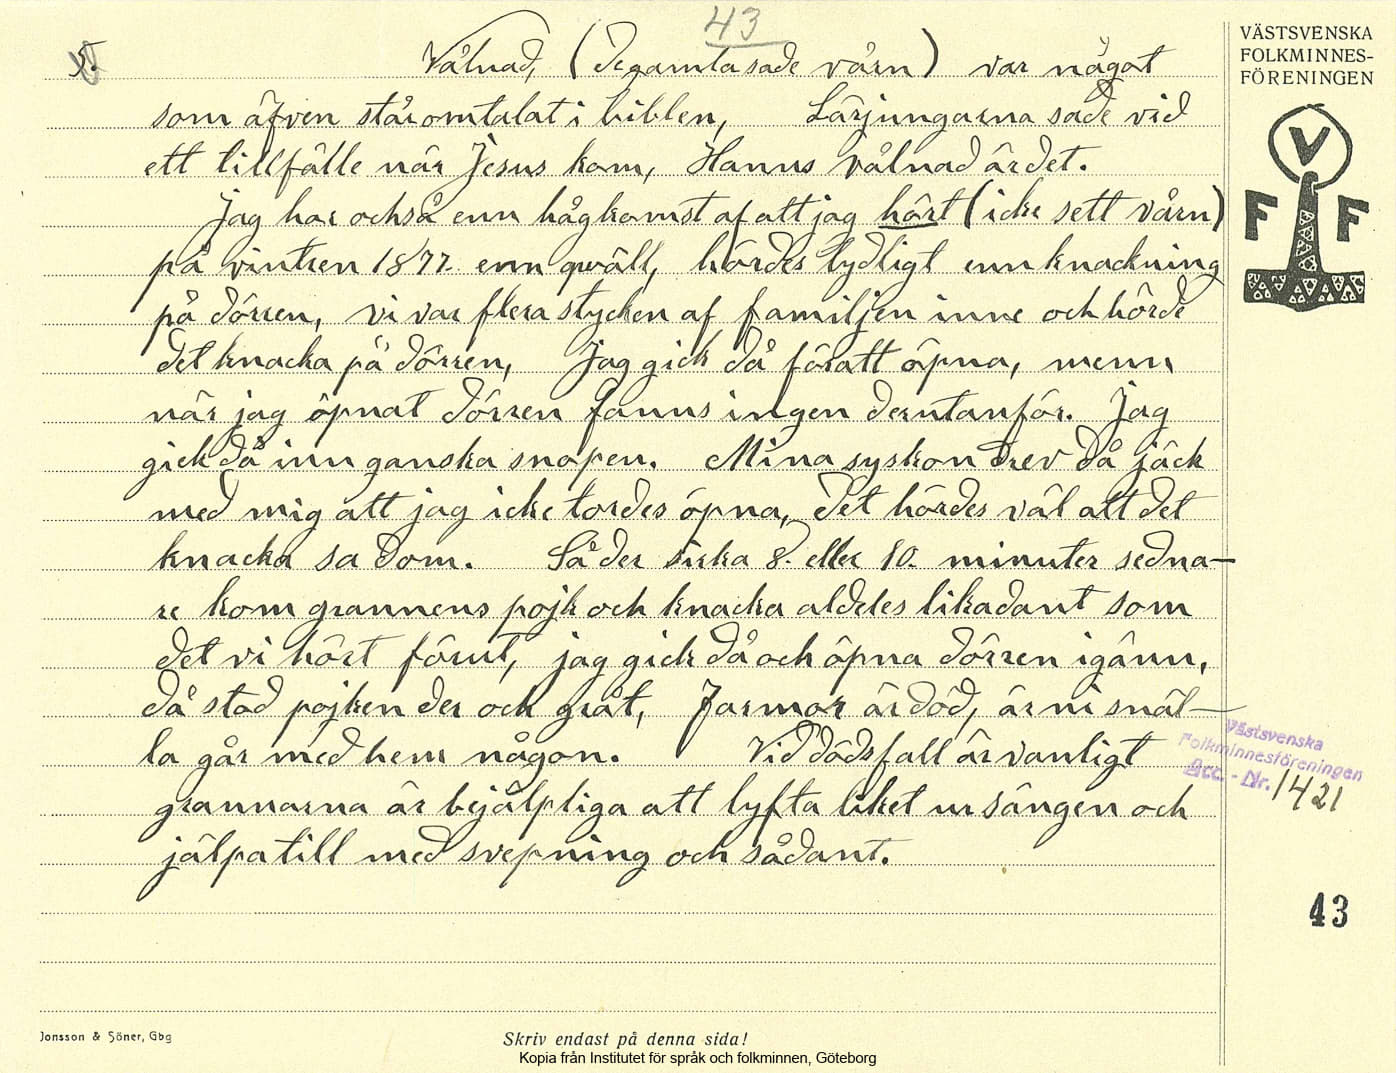 43
5.
Vålnad, (de gamla sade vårn) var något
som äfven står omtalat i bibblen, Lärjungarna sade vid
ett tillfälle när Jesus kom, Hanns vålnad är det.
Jag har också enn hågkomst af att jag hört (icke sett vårn)
på vintren 1877 enn qwäll, hördes tydligt enn knackning
på dörren, vi var flera stycken af familjen inne och hörde
det knacka på dörren, Jag gick då för att öpna, menn
när jag öpnat dörren fanns ingen derutanför. Jag
gick då inn ganska snopen. Mina syskon drev då jäck
med mig att jag icke tordes öpna, det hördes väl att det
knacka sa dom. Så der sirka 8. eller 10. minuter sedna-
re kom grannens pojk och knacka aldeles likadant som
det vi hört förut, jag gick då och öpna dörren igänn,
då stod pojken der och grät, Farmor är död, är ni snäl-
la går med hem någon. Vid dödsfall är vanligt
grannarna är bejälpliga att lyfta liket ur sängen och
jälpa till med svepning och sådant.
VÄSTSVENSKA
FOLKMINNES-
FÖRENINGEN
V
F F
Västsvenska
Folkminnesföreningen
Acc. - Nr. 1421
43
Jonsson & Söner, Gbg
Skriv endast på denna sida!
Kopia från Institutet för språk och folkminnen, Göteborg